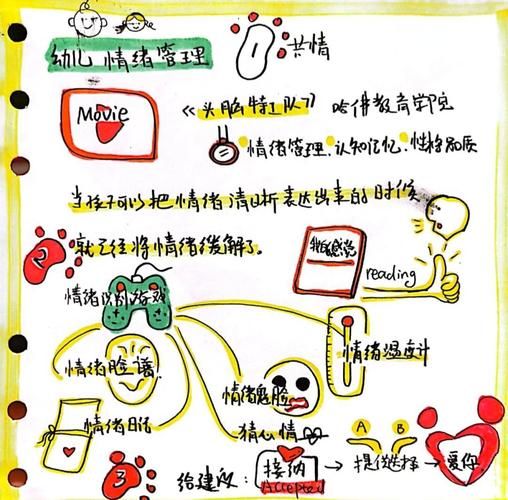 幼儿情绪管理
1 共情
Movie
《头脑特工队》哈佛教育学院
情绪管理、认知记忆、性格品质
当孩子可以把情绪清晰表达出来的时候
2 就已经将情绪缓解了。
我的感觉
reading
情绪识别游戏
情绪脸谱
情绪温度计
情绪日记
情绪鬼脸
猜心情
3 给建议:
接纳
Accepted
A B
提供选择
爱你